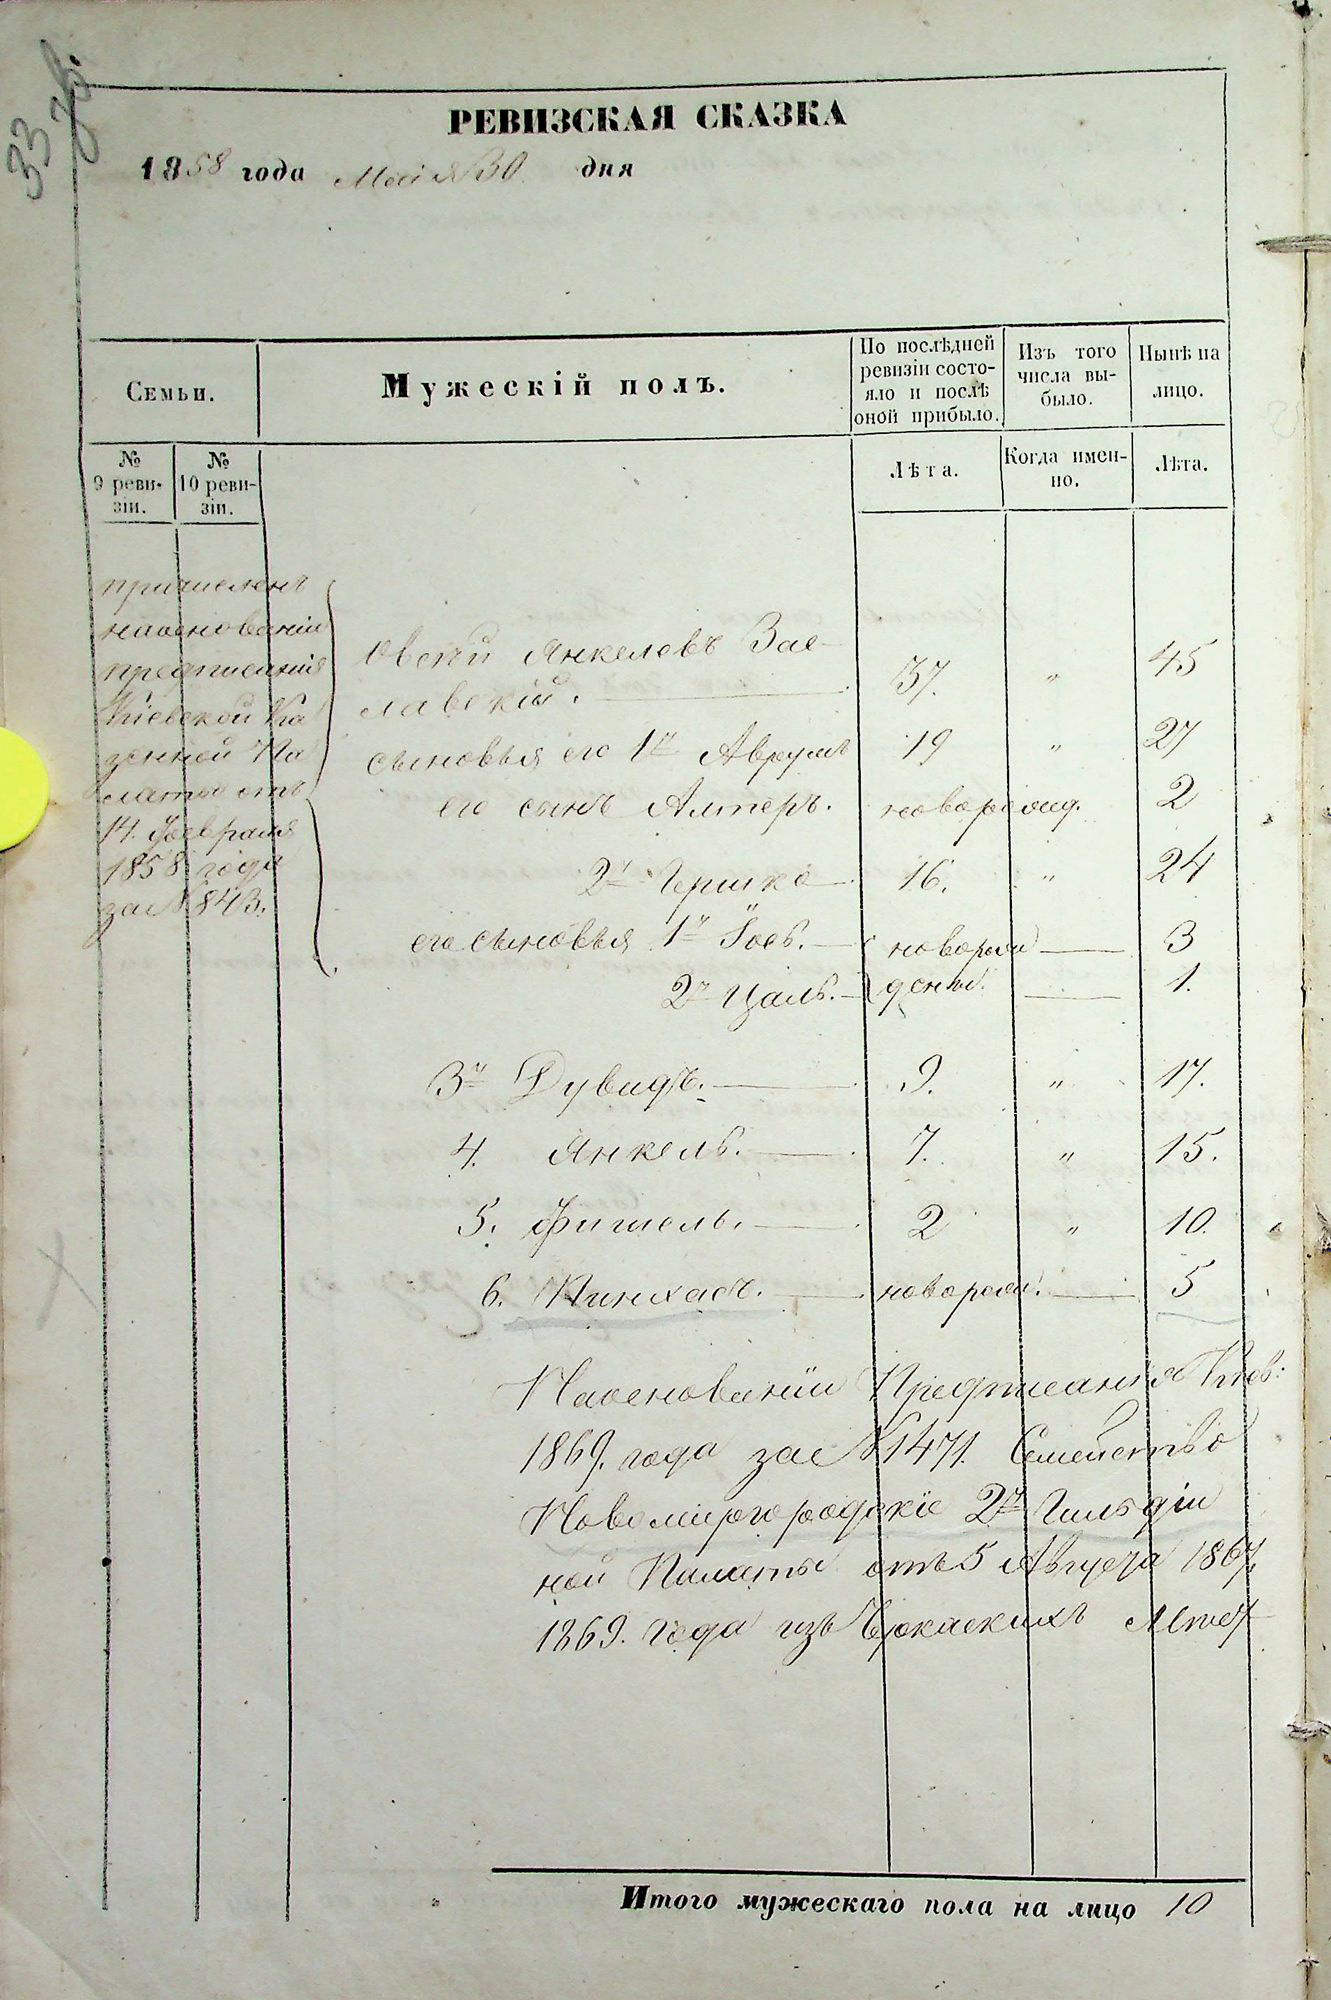 33 об.
РЕВИЗСКАЯ СКАЗКА
1858 года Мая 30 дня
Семьи.
Мужескій полъ.
По послѣдней
ревизіи состо-
яло и послѣ
оной прибыло.
Изъ того
числа вы-
было.
Нынѣ на
лицо.
№
9 реви-
зіи.
№
10 реви-
зіи.
Лѣта.
Когда имен-
но.
Лѣта.
причисленъ
наоснованіи
предписанія
Кіевской Ка
зенной Па
латы отъ
14. Февраля
1858 года
за № 843.
Янкелевъ Зас-
лавскій. 37. " 45
сыновья его 1й Аврумъ 19 " 27
его сынъ Алтеръ. новорожд. 2
2й Гершко 16. " 24
его сыновья 1й Іось. новорож 3
2й Цаль. денны. 1.
3й Дувидъ. 9. " 17.
4. Янкель. 7. " 15.
5. Фишель. 2 " 10.
6. Пинхасъ. новорожд. 5
Наоснованіи Предписанія Кіев:
1869. года за № 1471. Семейство
Новомиргородскіе 2й Гильдіи
ной Палаты отъ 5 Августа 1867,
1869. года изъ Черкаскихъ
Итого мужескаго пола на лицо 10